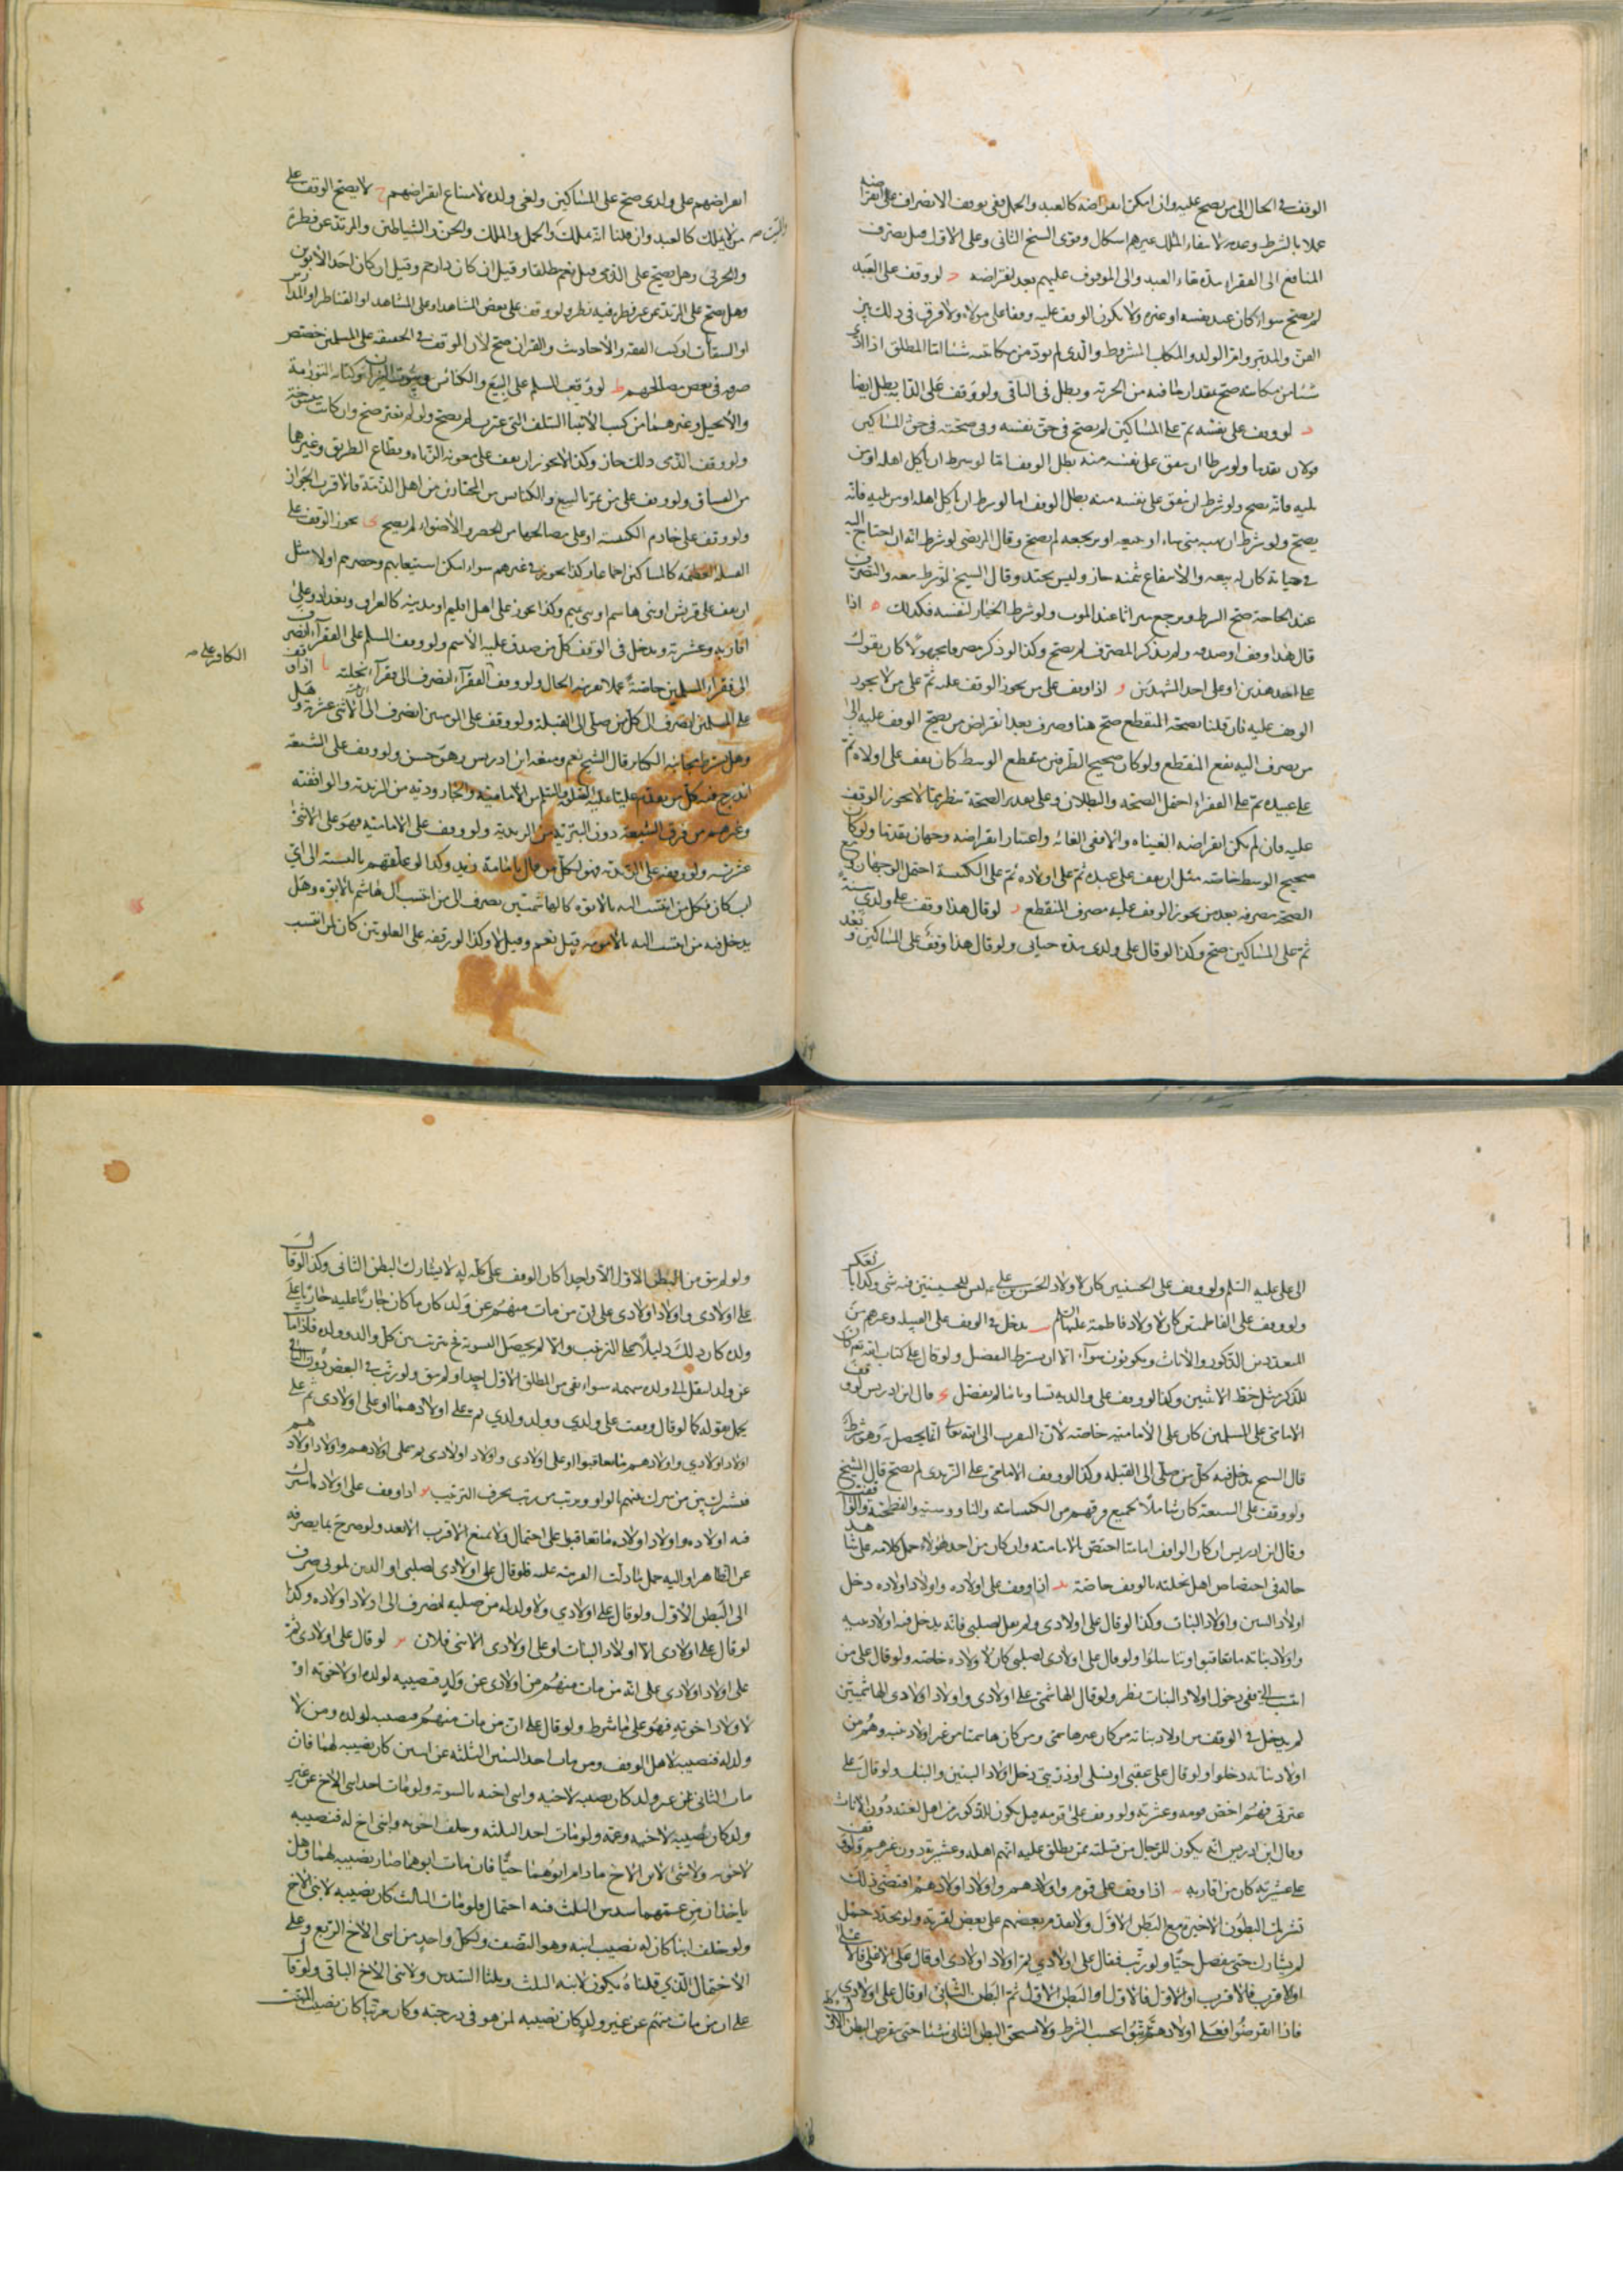 الوقف فى الحال الى من يصح عليه وان امكن انقراضه كالعبد والحمل ففى توقف الانصراف على انقراضه
عملا بالشرط وعدمه لانتفاء الملك عنهم اشكال وقوى الشيخ الثانى وعلى الاول قيل يصرف
المنافع الى الفقراء مدة بقاء العبد والى الموقوف عليهم بعد انقراضه د لو وقف على العبد
لم يصح سواء كان عبد نفسه او غيره ولا يكون الوقف عليه وقفا على مولاه ولا فرق فى ذلك بين
القن والمدبر وام الولد والمكاتب المشروط والذى لم يؤد من مكاتبته شيئا اما المطلق اذا ادى
شيئا من مكاتبته صح بقدر ما فيه من الحرية وبطل فى الباقى ولو وقف على الدابة بطل ايضا
لو وقف على نفسه ثم على المساكين لم يصح فى حق نفسه وفى صحته فى حق المساكين
قولان تقدما ولو شرط ان ينفق على نفسه منه بطل الوقف اما لو شرط ان ياكل اهله او من
يليه فانه يصح ولو شرط ان ينفق على نفسه منه بطل الوقف اما لو شرط ان ياكل اهله او من يليه فانه
يصح ولو شرط ان يهبه متى شاء او يبيعه او يرتجعه لم يصح وقال المرتضى لو شرط انه ان احتاج اليه
فى حياته كان له بيعه والانتفاع بثمنه جاز وليس بجيد وقال الشيخ لو شرط بيعه والتصرف
عند الحاجة صح الشرط ويرجع ميراثا عند الموت ولو شرط الخيار لنفسه فكذلك ه اذا
قال هذا وقف او صدقه ولم يذكر المصرف لم يصح وكذا لو ذكر مصرفا مجهولا كان يقول
على احد هذين او على احد المشهدين و اذا وقف على من يجوز الوقف عليه ثم على من لا يجوز
الوقف عليه فان قلنا بصحة المنقطع صح هنا وصرف بعد انقراض من يصح الوقف عليه الى
من يصرف اليه نفع المنقطع ولو كان صحيح الطرفين منقطع الوسط كان يقف على اولاده ثم
على عبيده ثم على الفقراء احتمل الصحة والبطلان وعلى تقدير الصحة ينظر فيما لا يجوز الوقف
عليه فان لم يمكن انقراضه الغيناه والا ففى الغائه واعتبار انقراضه وجهان تقدما ولو كان
صحيح الوسط خاصة مثل ان يقف على عبده ثم على اولاده ثم على الكنيسة احتمل الوجهان ومع
الصحة يصرفه بعد من يجوز الوقف عليه مصرف المنقطع ز لو قال هذا وقف على ولدى سنة
ثم على المساكين صح وكذا لو قال على ولدى مدة حياتى ولو قال هذا وقف على المساكين وبعد
انقراضهم على ولدى صح على المساكين ولغى ولده لامتناع انقراضهم ح لا يصح الوقف على
من لا يملك كالعبد وان قلنا انه يملك والحمل والملك والجن والشياطين والمرتد عن فطرة
والحربى وهل يصح على الذمى قيل نعم مطلقا وقيل ان كان ذا رحم وقيل ان كان احد الابوين
وهل يصح على المرتد عن غير فطرة فيه نظر ولو وقف على بعض المشاهد او على المساجد او القناطر او المدارس
او السقايات او كتب الفقه والاحاديث والقران صح لان الوقف فى الحقيقة على المسلمين خصص
صرفه فى بعض مصالحهم ط لو وقف المسلم على البيع والكنائس وبيوت النيران وكتابة التوراة
والانجيل وغيرهما من كتب الانبياء السلف التى غيرت لم يصح ولو لم تغير صح وان كانت منسوخة
ولو وقف الذمى ذلك جاز وكذا لا يجوز ان يقف على معونة الزناه وقطاع الطريق وغيرهما
من الفساق ولو وقف على من يمر بالبيع والكنائس من المجتازين من اهل الذمة فالاقرب الجواز
ولو وقف على خادم الكنيسة او على مصالحها من الحصر والاضواء لم يصح ى يجوز الوقف على
القبيلة العظيمة كالمساكين اجماعا وكذا يجوز فى غيرهم سواء امكن استيعابهم وحصرهم او لا مثل
ان يقف على قريش او بنى هاشم او بنى تميم وكذا يجوز على اهل اقليم او مدينة كالعراق وبغداد وعلى
اقاربه وعشيرته ويدخل فى الوقف كل من صدق عليه الاسم ولو وقف المسلم على الفقراء انصرف
الكافر على
الى فقراء المسلمين خاصة عملا بقرينة الحال ولو وقف الفقراء انصرف الى فقراء نحلته يا اذا وقف
على المسلمين انصرف الى كل من صلى الى القبلة ولو وقف على المومنين انصرف الى الاثنى عشرية وهل
وهل يشترط مجانبة الكبائر قال الشيخ نعم ومنعه ابن ادريس وهو حسن ولو وقف على الشيعة
اندرج فيه كل من يقدم عليا عليه الصلوة والسلم من الامامية والجارودية من الزيدية والواقفية
وغيرهم من فرق الشيعة دون البترية من الزيدية ولو وقف على الامامية فهو على الاثنى
عشرية ولو وقف على الزيدية فهو لكل من قال بامامة زيد وكذا لو علقهم بالنسبة الى اى
اب كان فكل من انتسب اليه بالابوة كالهاشميين يصرف الى من انتسب الى هاشم بالابوة وهل
يدخل فيه من انتسب اليه بالامومة قيل نعم وقيل لا وكذا لو وقفه على العلويين كان لمن انتسب
الى على عليه السلم ولو وقف على الحسنيين كان لاولاد الحسن على وليس للحسينيين فيه شى وكذا بالعكس
ولو وقف على الفاطميين كان لاولاد فاطمة عليها السلم يدخل فى الوقف على القبيلة وغيرهم من
المتعددين الذكور والاناث ويكونون سواء الا ان يشترط التفضيل ولو قال على كتاب الله تعالى كان
للذكر مثل حظ الانثيين وكذا لو وقف على والديه تساويا ما لم يفضل قال ابن ادريس لو وقف
الامامى على المسلمين كان على الامامية خاصة لان التقرب الى الله تعالى انما يحصل به وهو شرط
قال الشيخ يدخل فيه كل من صلى الى القبلة وكذا لو وقف الامامى على الزيدى لم يصح قال الشيخ
ولو وقف على الشيعة كان شاملا لجميع فرقهم من الكيسانية والناووسية والفطحية والواقفية
وقال ابن ادريس ان كان الواقف اماميا اختص بالامامية وان كان من احد هؤلاء حمل كلامه على شاهد
حاله فى اختصاص اهل نحلته بالوقف خاصة يد اذا وقف على اولاده واولاد اولاده دخل
اولاد البنين واولاد البنات وكذا لو قال على اولادى ولم يقل لصلبى فانه يدخل فيه اولاد بنيه
واولاد بناته ما تعاقبوا وتناسلوا ولو قال على اولادى لصلبى كان لاولاده خاصة ولو قال على من
انتسب الى ففى دخول اولاد البنات نظر ولو قال الهاشمى على اولادى واولاد اولادى الهاشميين
لم يدخل فى الوقف من اولاد بناته من كان غير هاشمى ومن كان هاشميا من غير اولاد بنيه وهم من
اولاد بناته دخلوا ولو قال على عقبى او نسلى او ذريتى دخل اولاد البنين والبنات ولو قال على
عترتى فهم اخص قومه وعشيرته ولو وقف على قومه قيل يكون للذكور من اهل لغته دون الاناث
وقال ابن ادريس انه يكون للرجال من قبيلته ممن يطلق عليه انهم اهله وعشيرته دون غيرهم ولو وقف
على عشيرته كان من اقاربه اذا وقف على قوم واولادهم واولاد اولادهم اقتضى ذلك
تشريك البطون الاخيرة مع البطن الاول ولا يقدم بعضهم على بعض لقربه ولو تجدد حمل
لم يشارك حتى ينفصل حيا ولو رتب فقال على اولادى ثم اولاد اولادى او قال على الاعلى فالاعلى
او الاقرب فالاقرب او الاول فالاول او البطن الاول ثم البطن الثانى او قال على اولادى
فاذا انقرضوا فعلى اولادهم ترتبوا بحسب الشرط ولا يستحق البطن الثانى شيئا حتى ينقرض البطن الاول
ولو لم يبق من البطن الاول الا واحدا كان الوقف على كله له لا يشارك البطن الثانى وكذا لو قال
على اولادى واولاد اولادى على ان من مات منهم عن ولد كان ما كان جاريا عليه جاريا على
ولده كان ذلك دليلا على الترتيب والا لم يحصل التسوية ثم يترتب بين كل والد وولده فاذا مات
عن ولد انتقل الى ولده سهمه سواء بقى من البطن الاول احد او لم يبق ولو رتب فى البعض دون الباقى
يحمل بقوله كما لو قال وقفت على ولدى وولد ولدى ثم على اولادهما او على اولادى ثم على
اولاد اولادي واولادهم ما تعاقبوا او على اولادى واولاد اولادى ثم على اولادهم واولاد اولادهم
فيشترك بين من شرك بينهم بالواو ويرتب من رتب بحرف الترتيب اذا وقف على اولاد اشترك
فيه اولاده واولاد اولاده ما تعاقبوا على احتمال ولا يمنع الاقرب الابعد ولو صرح بما يصرفه
عن الظاهر او اليه حمل بما دلت القرينة عليه فلو قال على اولادى لصلبى او الذين يلونى صرف
الى البطن الاول ولو قال على اولادي ولا ولد له من صلبه انصرف الى اولاد اولاده وكذا
لو قال على اولادى الا اولاد البنات او على اولادى الا بنى فلان لو قال على اولادى ثم
على اولاد اولادي على انه من مات منهم من اولادى عن ولد فنصيبه لولده او لاخوته او
لاولاد اخوته فهو على ما شرط ولو قال على ان من مات منهم فنصيبه لولده ومن لا
ولد له فنصيبه لاهل الوقف ومن مات احد البنين الثلثة عن ابنين كان نصيبه لهما فان
مات الثانى عن غير ولد كان نصيبه لاخيه وابنى اخيه بالسوية ولو مات احد ابنى الاخ عن غير
ولد كان نصيبه لاخيه وعمه ولو مات احد الثلثة وخلف اخويه وابنى اخ له فنصيبه
لاخويه ولا شى لابنى الاخ ما دام ابوهما حيا فان مات ابوهما صار نصيبه لهما وهل
ياخذان من عمهما سدس الثلث فيه احتمال ولو مات الثالث كان نصيبه لابنى الاخ
ولو خلف ابنا كان له نصيب ابيه وهو النصف ولكل واحد من ابنى الاخ الربع وعلى
الاحتمال الذي قلناه يكون لابنه الثلث وثلثا السدس ولابنى الاخ الباقى ولو قال
على ان من مات منهم عن غير ولد كان نصيبه لمن هو فى درجته وكان مرتبا كان نصيب الميت